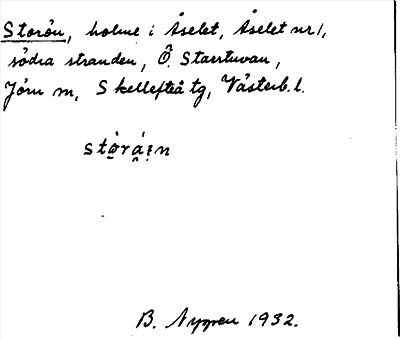 Storön, holme i Åselet, Åselet nr 1,
södra stranden, Ö. Starrtuvan,
Jörn sn, Skellefteå tg, Västerb. l.
stǫ̀rá̯ı̣n
B. Nygren 1932.